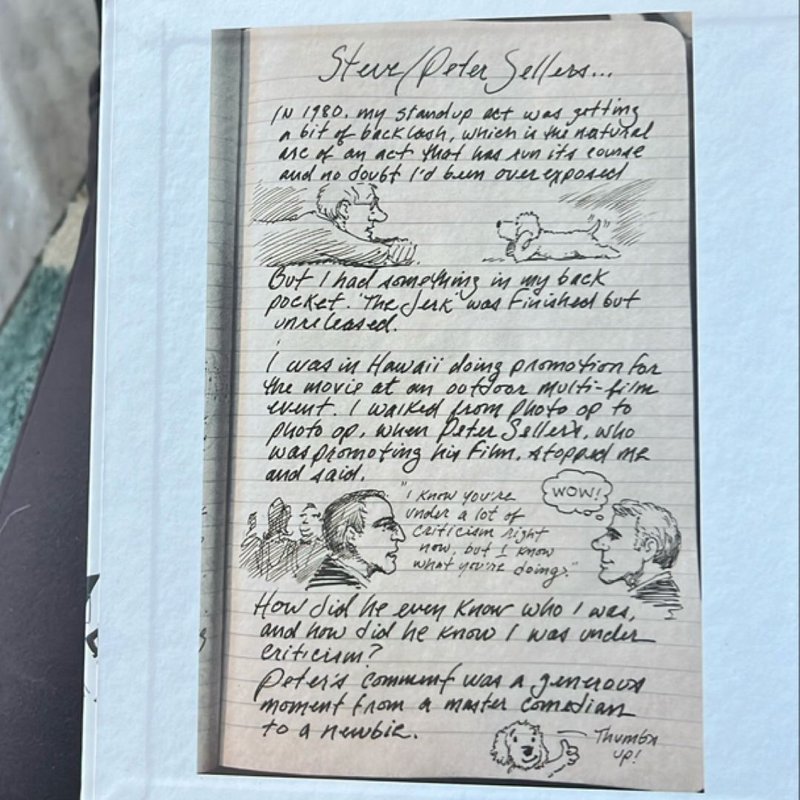 Steve/Peter Sellers...
IN 1980, my standup act was getting
a bit of backlash, which is the natural
arc of an act that has run its course
and no doubt I'd been overexposed
But I had something in my back
pocket. 'The Jerk' was finished but
unreleased.
I was in Hawaii doing promotion for
the movie at an outdoor multi-film
event. I walked from photo op to
photo op, when Peter Sellers, who
was promoting his film, stopped me
and said,
"I know you're
under a lot of
criticism right
now, but I know
what you're doing."
WOW!
How did he even know who I was,
and how did he know I was under
criticism?
Peter's comment was a generous
moment from a master comedian
to a newbie.
Thumbs
up!